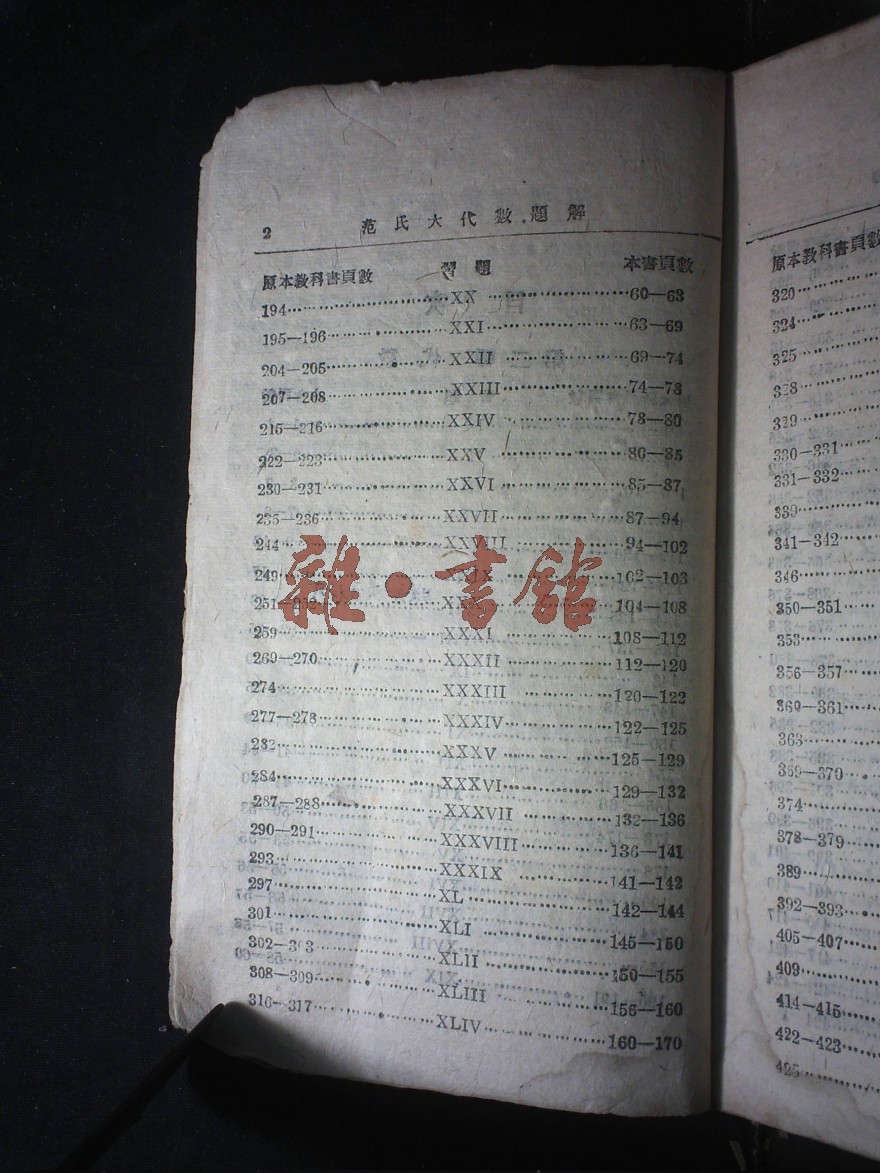 2 范氏大代數題解
原本教科書頁數 習題 本書頁數
194……XX……60—63
195—196……XXI……63—69
204—205……XXII……69—74
207—208……XXIII……74—78
215—216……XXIV……78—80
222—223……XXV……80—85
230—231……XXVI……85—87
235—236……XXVII……87—94
244……XXVIII……94—102
249……XXIX……102—103
251—252……XXX……104—108
259……XXXI……108—112
269—270……XXXII……112—120
274……XXXIII……120—122
277—278……XXXIV……122—125
282……XXXV……125—129
284……XXXVI……129—132
287—288……XXXVII……132—136
290—291……XXXVIII……136—141
293……XXXIX……141—142
297……XL……142—144
301……XLI……145—150
302—303……XLII……150—155
308—309……XLIII……155—160
316—317……XLIV……160—170
雜·書館
原本教科書頁數
320……
324……
325……
328……
329……
330—331……
331—332……
339……
341—342……
346……
350—351……
353……
356—357……
360—361……
363……
369—370……
374……
378—379……
389……
392—393……
405—407……
409……
414—415……
422—423……
425……